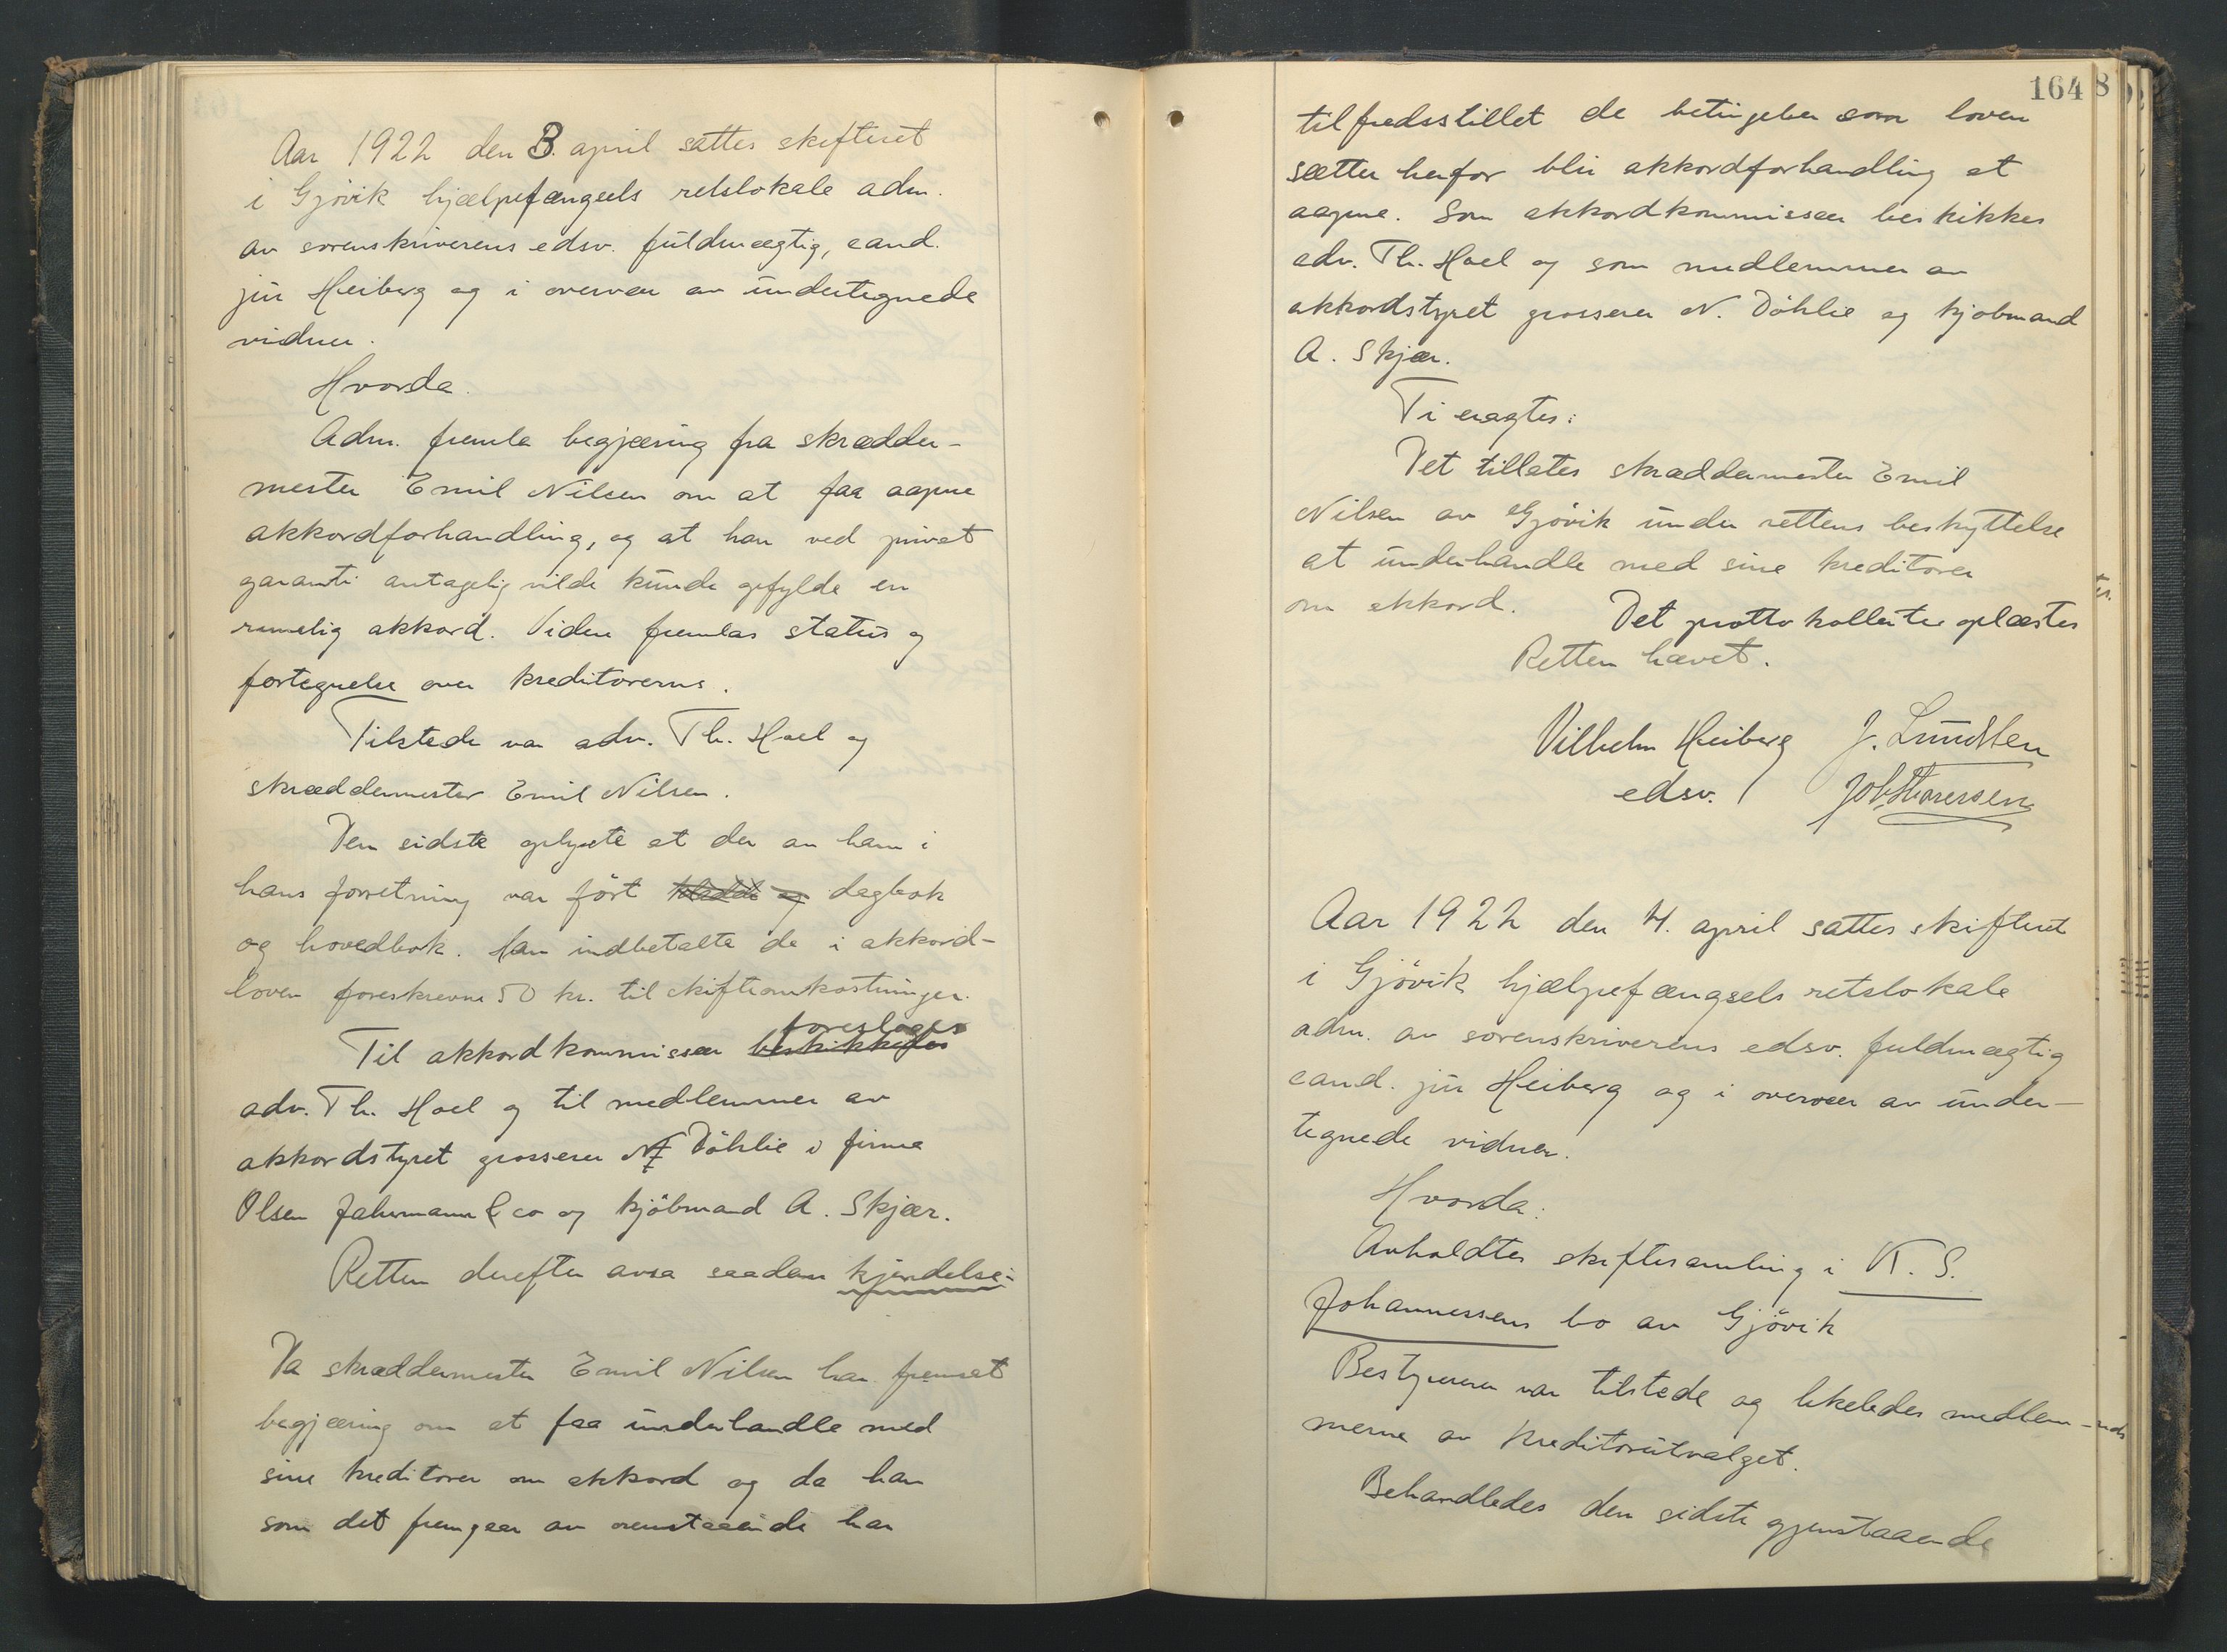 Aar 1922 den 3. april sattes skifteret
i Gjövik hjælpefængsels retslokale adm.
av sorenskriverens edsv. fuldmægtig, cand.
jur Heiberg og i overvær av undertegnede
vidner.
Hvorda.
Adm. fremla begjæring fra skrædder-
mester Emil Nilsen om at faa aapne
akkordforhandling, og at han ved privat
garanti antagelig vilde kunde opfylde en
rimelig akkord. Videre fremlas status og
fortegnelse over kreditorerns.
Tilstede var adv. Th. Hoel og
skræddermester Emil Nilsen.
Den sidste oplyste at der av ham i
hans forretning var ført kladde og dagbok
og hovedbok. Han indbetalte de i akkord-
loven foreskrevne 50 kr. til skifteomkostninger.
foreslages
Til akkordkommissær beskikkedes
adv. Th. Hoel og til medlemmer av
akkordstyret grosserer N Döhlie i firma
Olsen Jahrmann & co og kjöbmand A. Skjær.
Retten derefter avsa saadan kjendelse:
Da skræddermester Emil Nilsen har fremsat
begjæring om at faa underhandle med
sine kreditorer om akkord og da han
som det fremgaar av ovenstaaende har
164
tilfredsstillet de betingelser som loven
sætter herfor blir akkordforhandling at
aapne. Som akkordkommissær beskikkes
adv. Th. Hoel og som medlemmer av
akkordstyret grosserer N. Döhlie og kjøbmand
A. Skjær.
Ti eragtes:
Det tillates skræddermester Emil
Nilsen av Gjövik under rettens beskyttelse
at underhandle med sine kreditorer
om akkord. Det prottokollerte oplæstes
Retten hævet.
Vilhelm Heiberg J. Lundsten
edsv. Joh. Thoresen
Aar 1922 den 4. april sattes skifteret
i Gjövik hjælpefængsels retslokale
adm. av sorenskriverens edsv. fuldmægtig
cand. jur Heiberg og i overvær av under-
tegnede vidner.
Hvorda:
Avholdtes skiftesamling i K. S.
Johannessens bo av Gjövik
Bestyreren var tilstede og likeledes medlem-
merne av kreditorutvalget.
Behandledes den sidste gjenstaaende